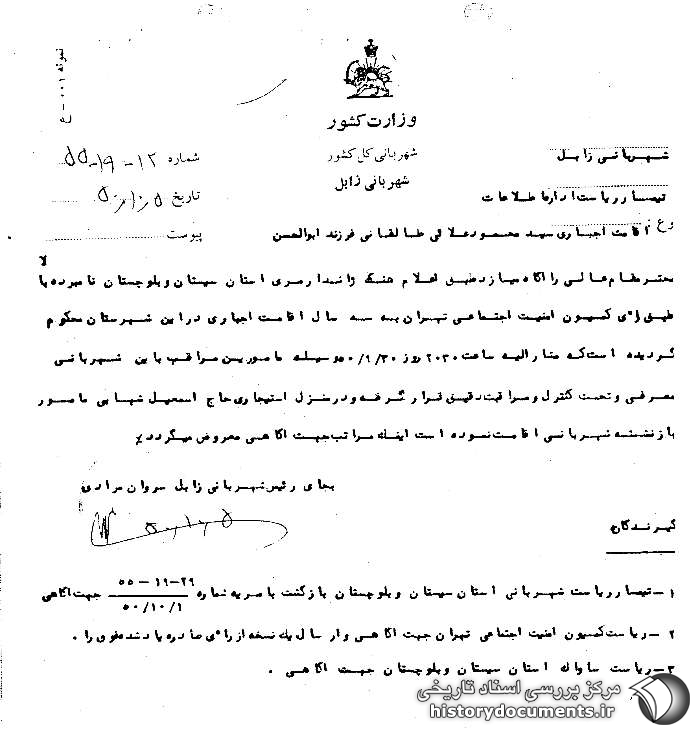 نمونه ۰۰۱ – ع
وزارت کشور
شهربانی کل کشور
شهربانی زابل
شماره ۱۲ – ۱۹ – ۵۵
تاریخ ۵ ر ۱۰ ر ۵۰
پیوست
شهربانی زابل
تیمسار ریاست اداره اطلاعات
اقامت اجباری سید محمود علائی طالقانی فرزند ابوالحسن
محترما معالی را آگاه میسازد طبق اعلام هنگ ژاندارمری استان سیستان و بلوچستان نامبرده بالا
طبق رای کمیسیون امنیت اجتماعی تهران به سه سال اقامت اجباری در این شهرستان محکوم
گردیده است که مشارالیه ساعت ۲۰۳۰ روز ۵۰/۹/۳۰ بوسیله مامورین مراقب باین شهربانی
معرفی و تحت کنترل و مراقبت دقیق قرار گرفته و در منزل استیجاری حاج اسمعیل شهابی مامور
بازنشسته شهربانی اقامت نموده است اینک مراتب جهت آگاهی معروض میگردد٪
بجای رئیس شهربانی زابل سروان مرادی
۵ ر ۱۰ ر ۵۰
گیرندگان
۱ – تیمسار ریاست شهربانی استان سیستان و بلوچستان بازگشت بامریه شماره ۲۹–۱۹ – ۵۵ ۵۰/۱۰/۱ جهت آگاهی
۲ – ریاست کمیسیون امنیت اجتماعی تهران جهت آگاهی و ارسال یک نسخه از رای صادره یاد شده فوق را .
۳ – ریاست ساواک استان سیستان و بلوچستان جهت آگاهی .
مرکز بررسی اسناد تاریخی
historydocuments.ir